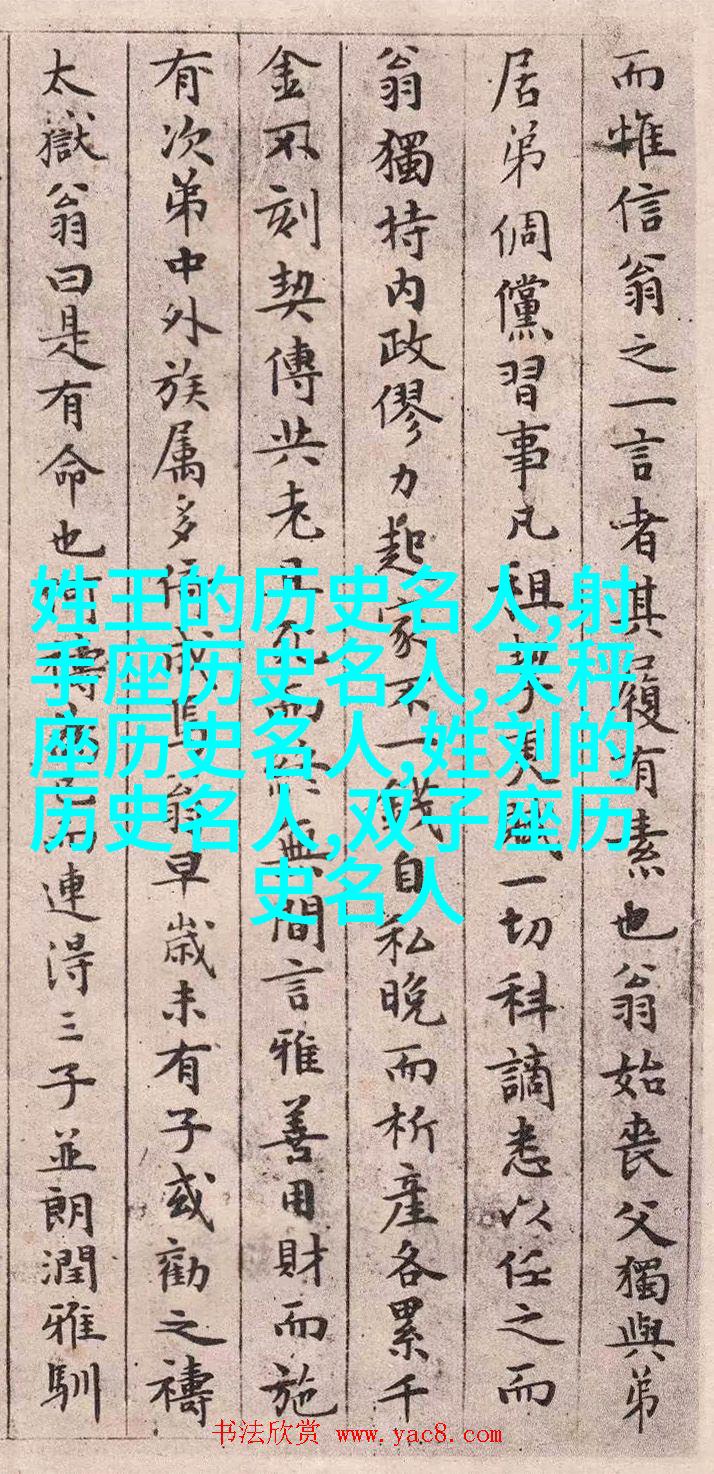 而惟信翁之一言者其履有素也翁始丧父獨與弟
居弟倜儻習事凡租更一切科謫悉以任之而
翁獨持内政僇力起家不一錢自私晚而析產各累千
金不刻契傳共老且死而終無間言雅善用財而施
有次弟中外族属多倚成焉翁早歲未有子或勸之禱
太嶽翁曰是有命也何禱為已而連得三子並朗潤雅馴
姓王的历史名人,射
手座历史名人,天秤
座历史名人,姓刘的
历史名人,双子座历
史名人
书法欣赏 www.yac8.com